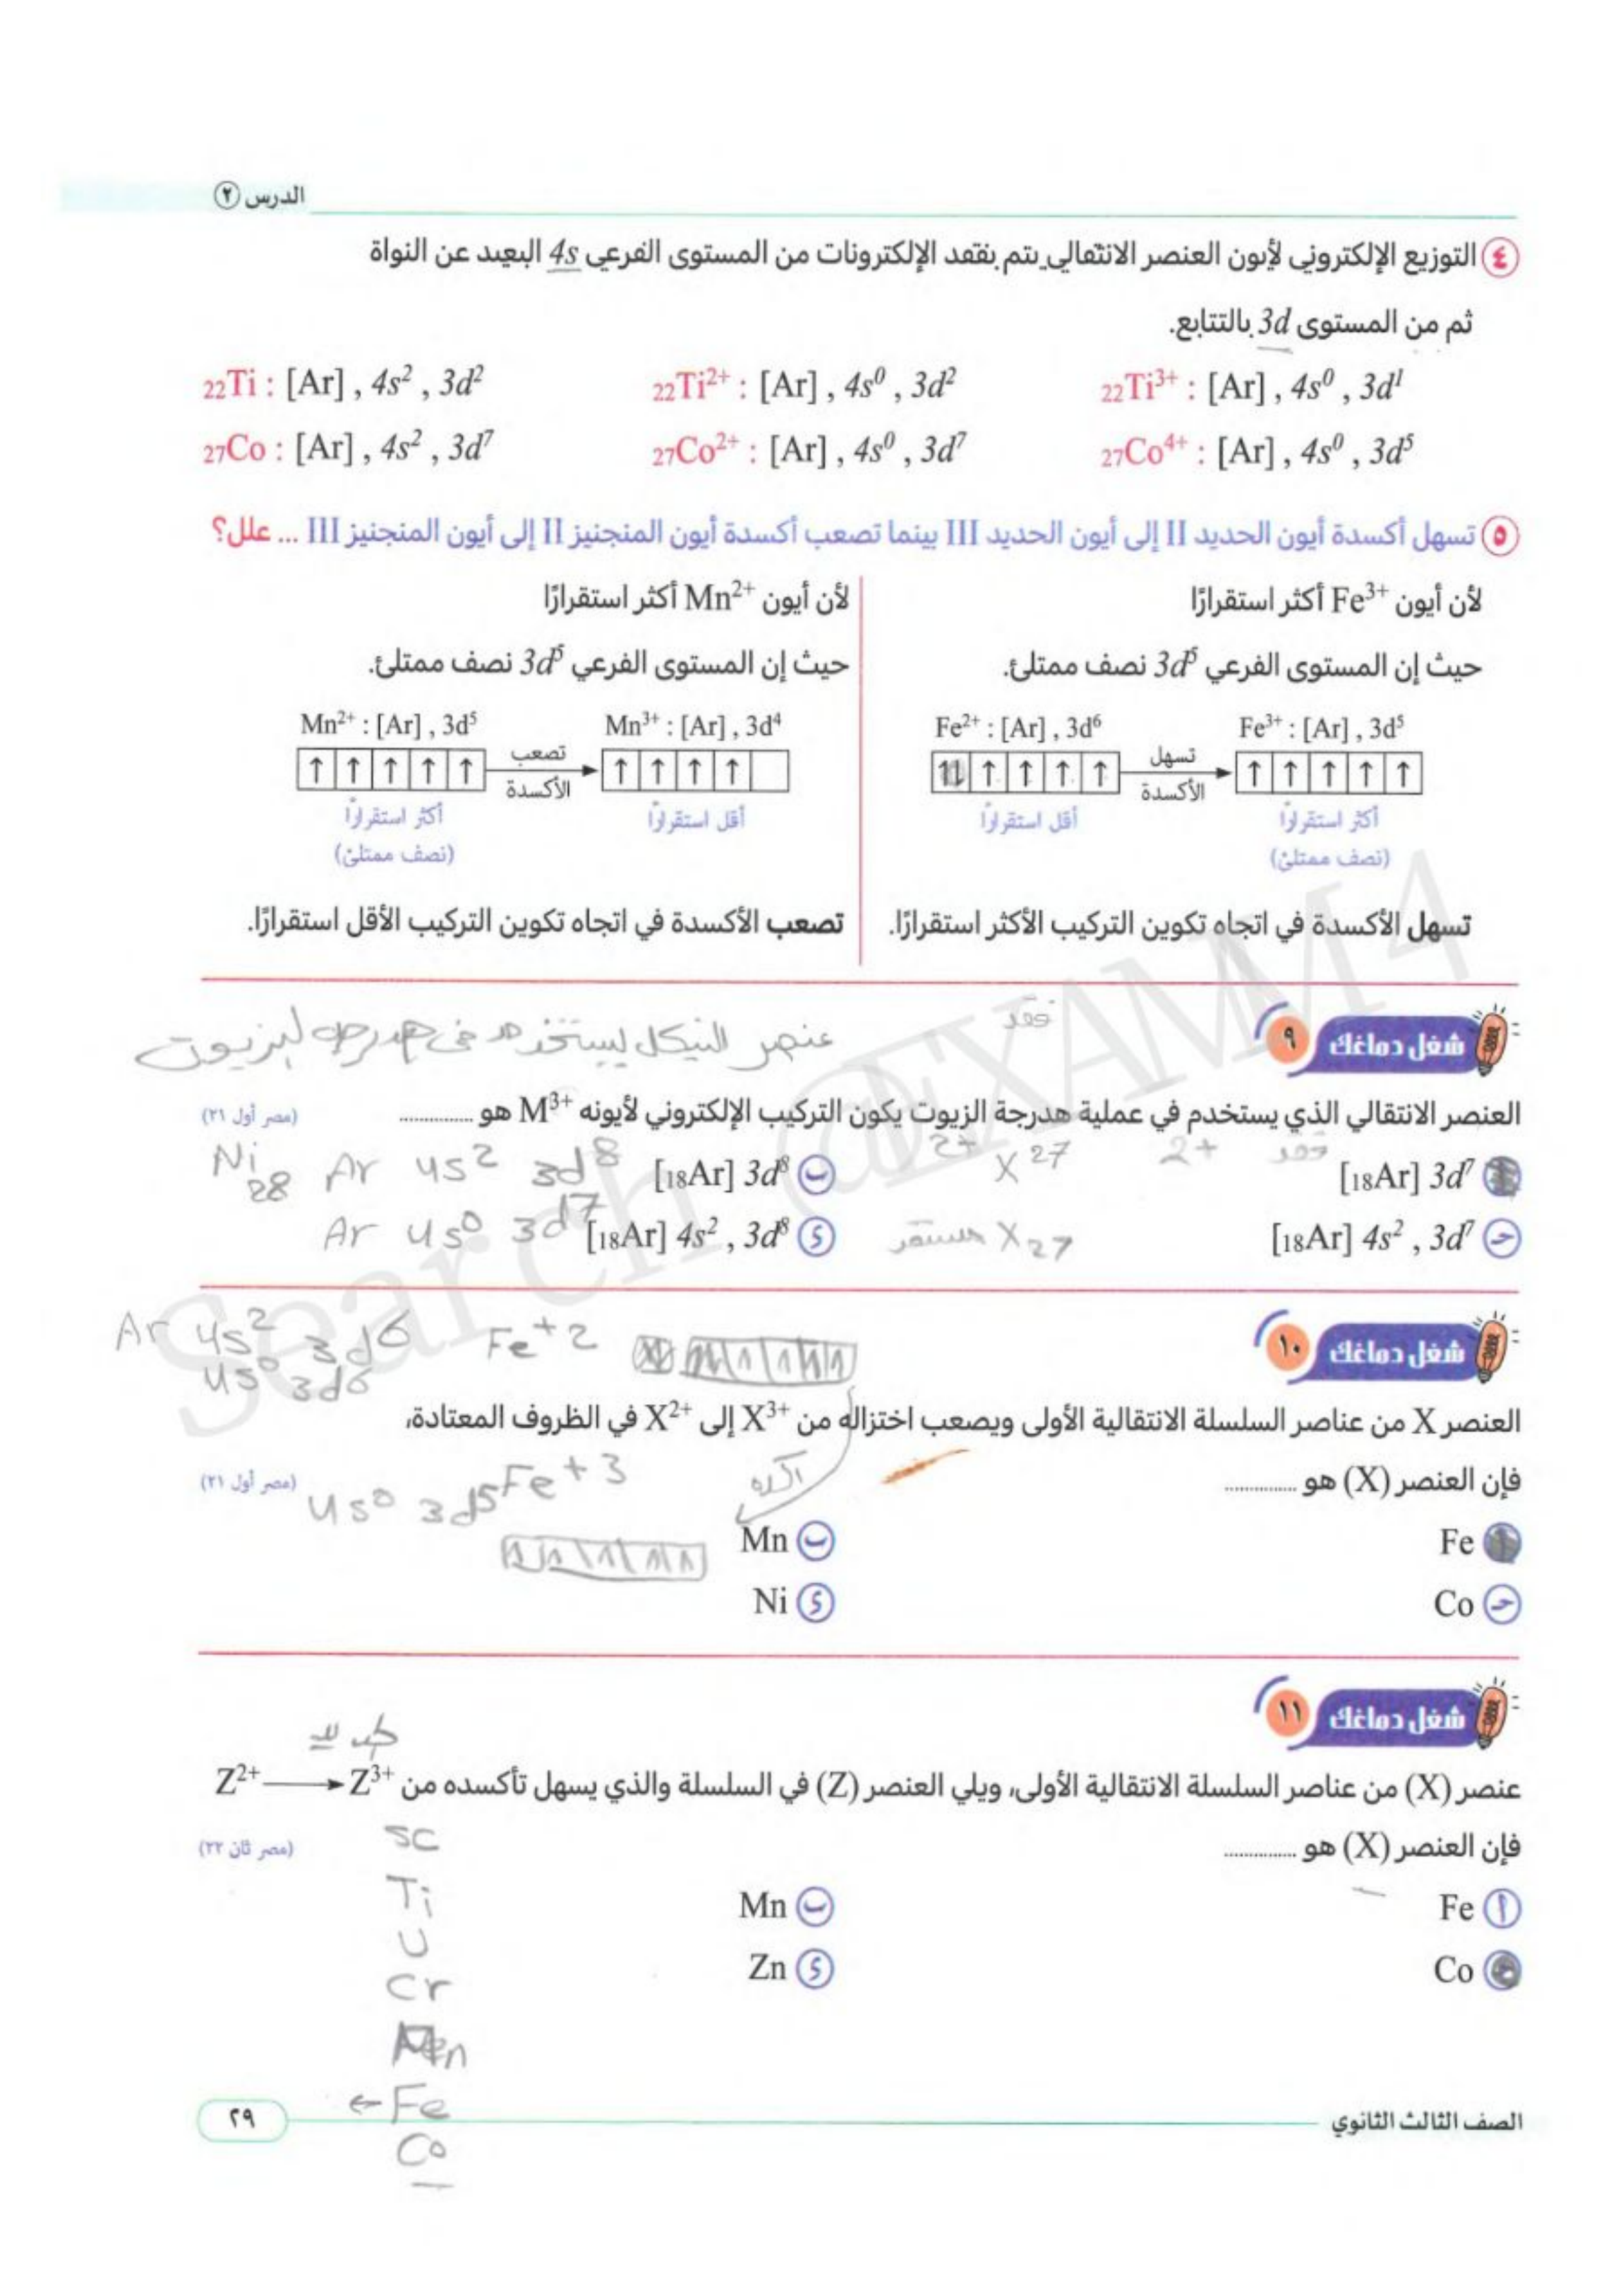 الدرس ٢
٤ التوزيع الإلكتروني لأيون العنصر الانتقالي يتم بفقد الإلكترونات من المستوى الفرعي 4s البعيد عن النواة
ثم من المستوى 3d بالتتابع.
22Ti : [Ar] , 4s² , 3d² 22Ti²⁺ : [Ar] , 4s⁰ , 3d² 22Ti³⁺ : [Ar] , 4s⁰ , 3d¹
27Co : [Ar] , 4s² , 3d⁷ 27Co²⁺ : [Ar] , 4s⁰ , 3d⁷ 27Co⁴⁺ : [Ar] , 4s⁰ , 3d⁵
٥ تسهل أكسدة أيون الحديد II إلى أيون الحديد III بينما تصعب أكسدة أيون المنجنيز II إلى أيون المنجنيز III ... علل؟
لأن أيون Fe³⁺ أكثر استقرارًا
حيث إن المستوى الفرعي 3d⁵ نصف ممتلئ.
Fe²⁺ : [Ar] , 3d⁶ Fe³⁺ : [Ar] , 3d⁵
↑↓ ↑ ↑ ↑ ↑ تسهل الأكسدة ↑ ↑ ↑ ↑ ↑
أقل استقرارًا أكثر استقرارًا
(نصف ممتلئ)
تسهل الأكسدة في اتجاه تكوين التركيب الأكثر استقرارًا.
لأن أيون Mn²⁺ أكثر استقرارًا
حيث إن المستوى الفرعي 3d⁵ نصف ممتلئ.
Mn²⁺ : [Ar] , 3d⁵ Mn³⁺ : [Ar] , 3d⁴
↑ ↑ ↑ ↑ ↑ تصعب الأكسدة ↑ ↑ ↑ ↑
أكثر استقرارًا أقل استقرارًا
(نصف ممتلئ)
تصعب الأكسدة في اتجاه تكوين التركيب الأقل استقرارًا.
شغل دماغك ٩
فقد
عنصر النيكل يستخدم في هدرجه الزيوت
العنصر الانتقالي الذي يستخدم في عملية هدرجة الزيوت يكون التركيب الإلكتروني لأيونه M³⁺ هو ...............
(مصر أول ٢١)
أ [18Ar] 3d⁷
ب [18Ar] 3d⁸
فقد 2+ X 27 2+
Ni 28 Ar 4s² 3d8
جـ [18Ar] 4s² , 3d⁷
د [18Ar] 4s² , 3d⁸
X 27
Ar 4s⁰ 3d7
شغل دماغك ١٠
Ar 4s² 3d6 Fe+2
4s⁰ 3d6
العنصر X من عناصر السلسلة الانتقالية الأولى ويصعب اختزاله من X³⁺ إلى X²⁺ في الظروف المعتادة،
فإن العنصر (X) هو ...............
(مصر أول ٢١)
4s⁰ 3d5 Fe+3
أ Fe
ب Mn
جـ Co
د Ni
شغل دماغك ١١
عنصر (X) من عناصر السلسلة الانتقالية الأولى، ويلي العنصر (Z) في السلسلة والذي يسهل تأكسده من Z²⁺ ⟶ Z³⁺
فإن العنصر (X) هو ...............
(مصر ثان ٢٢)
أ Fe
ب Mn
جـ Co
د Zn
Sc
Ti
Cr
← Fe
Co
الصف الثالث الثانوي
٢٩
Search @EXAMM4